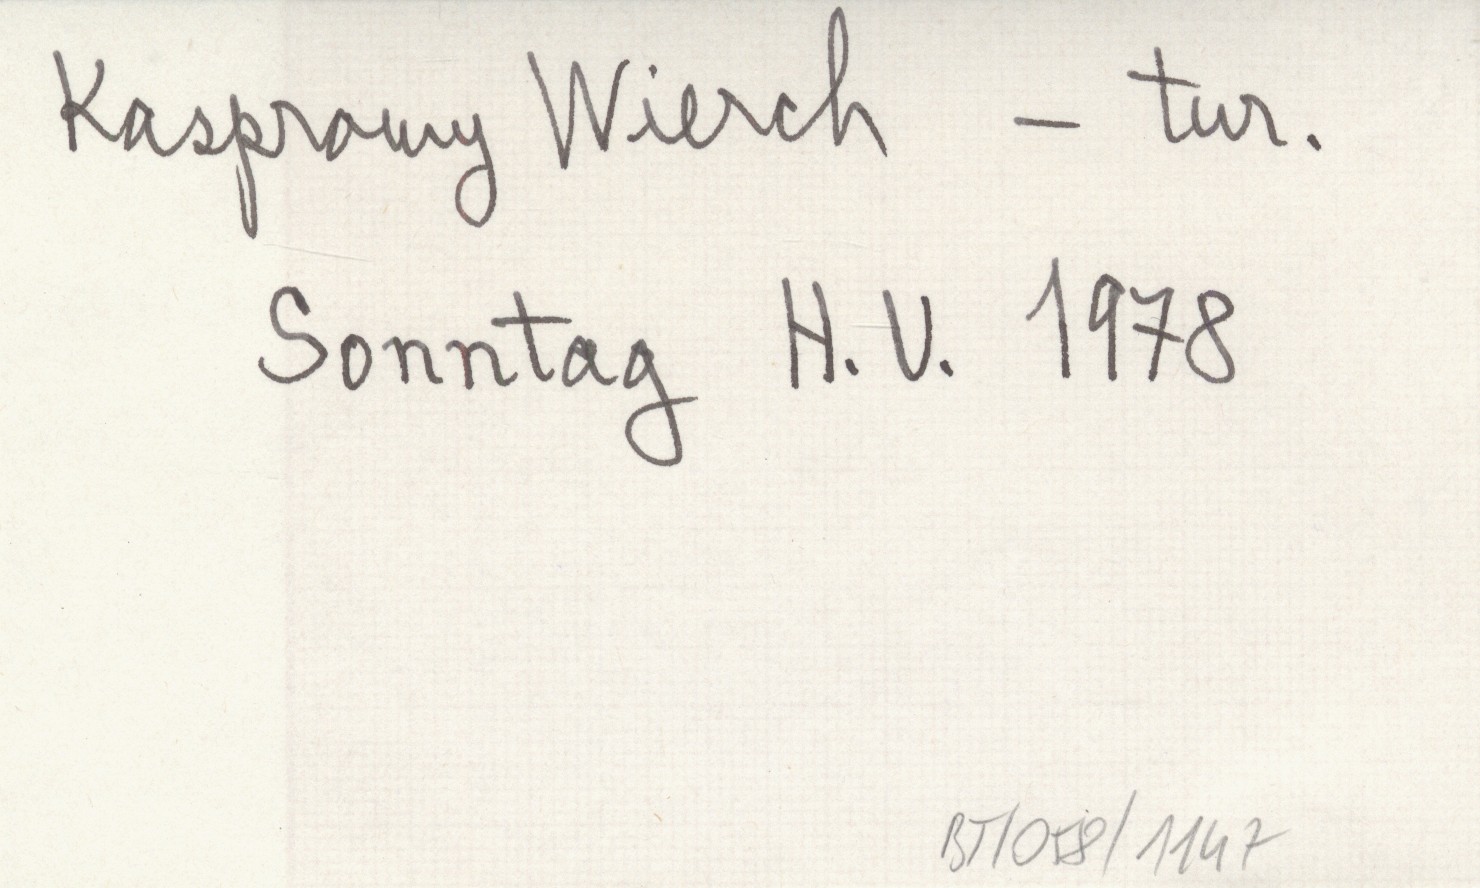 Kasprowy Wierch - tur.
Sonntag H.V. 1978
BT/058/1147